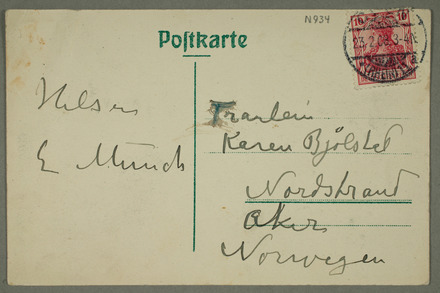 N934
Postkarte
10 10
Hilsen
E Munch
Fraulein
Karen Bjølstad
Nordstrand
Aker
Norwegen